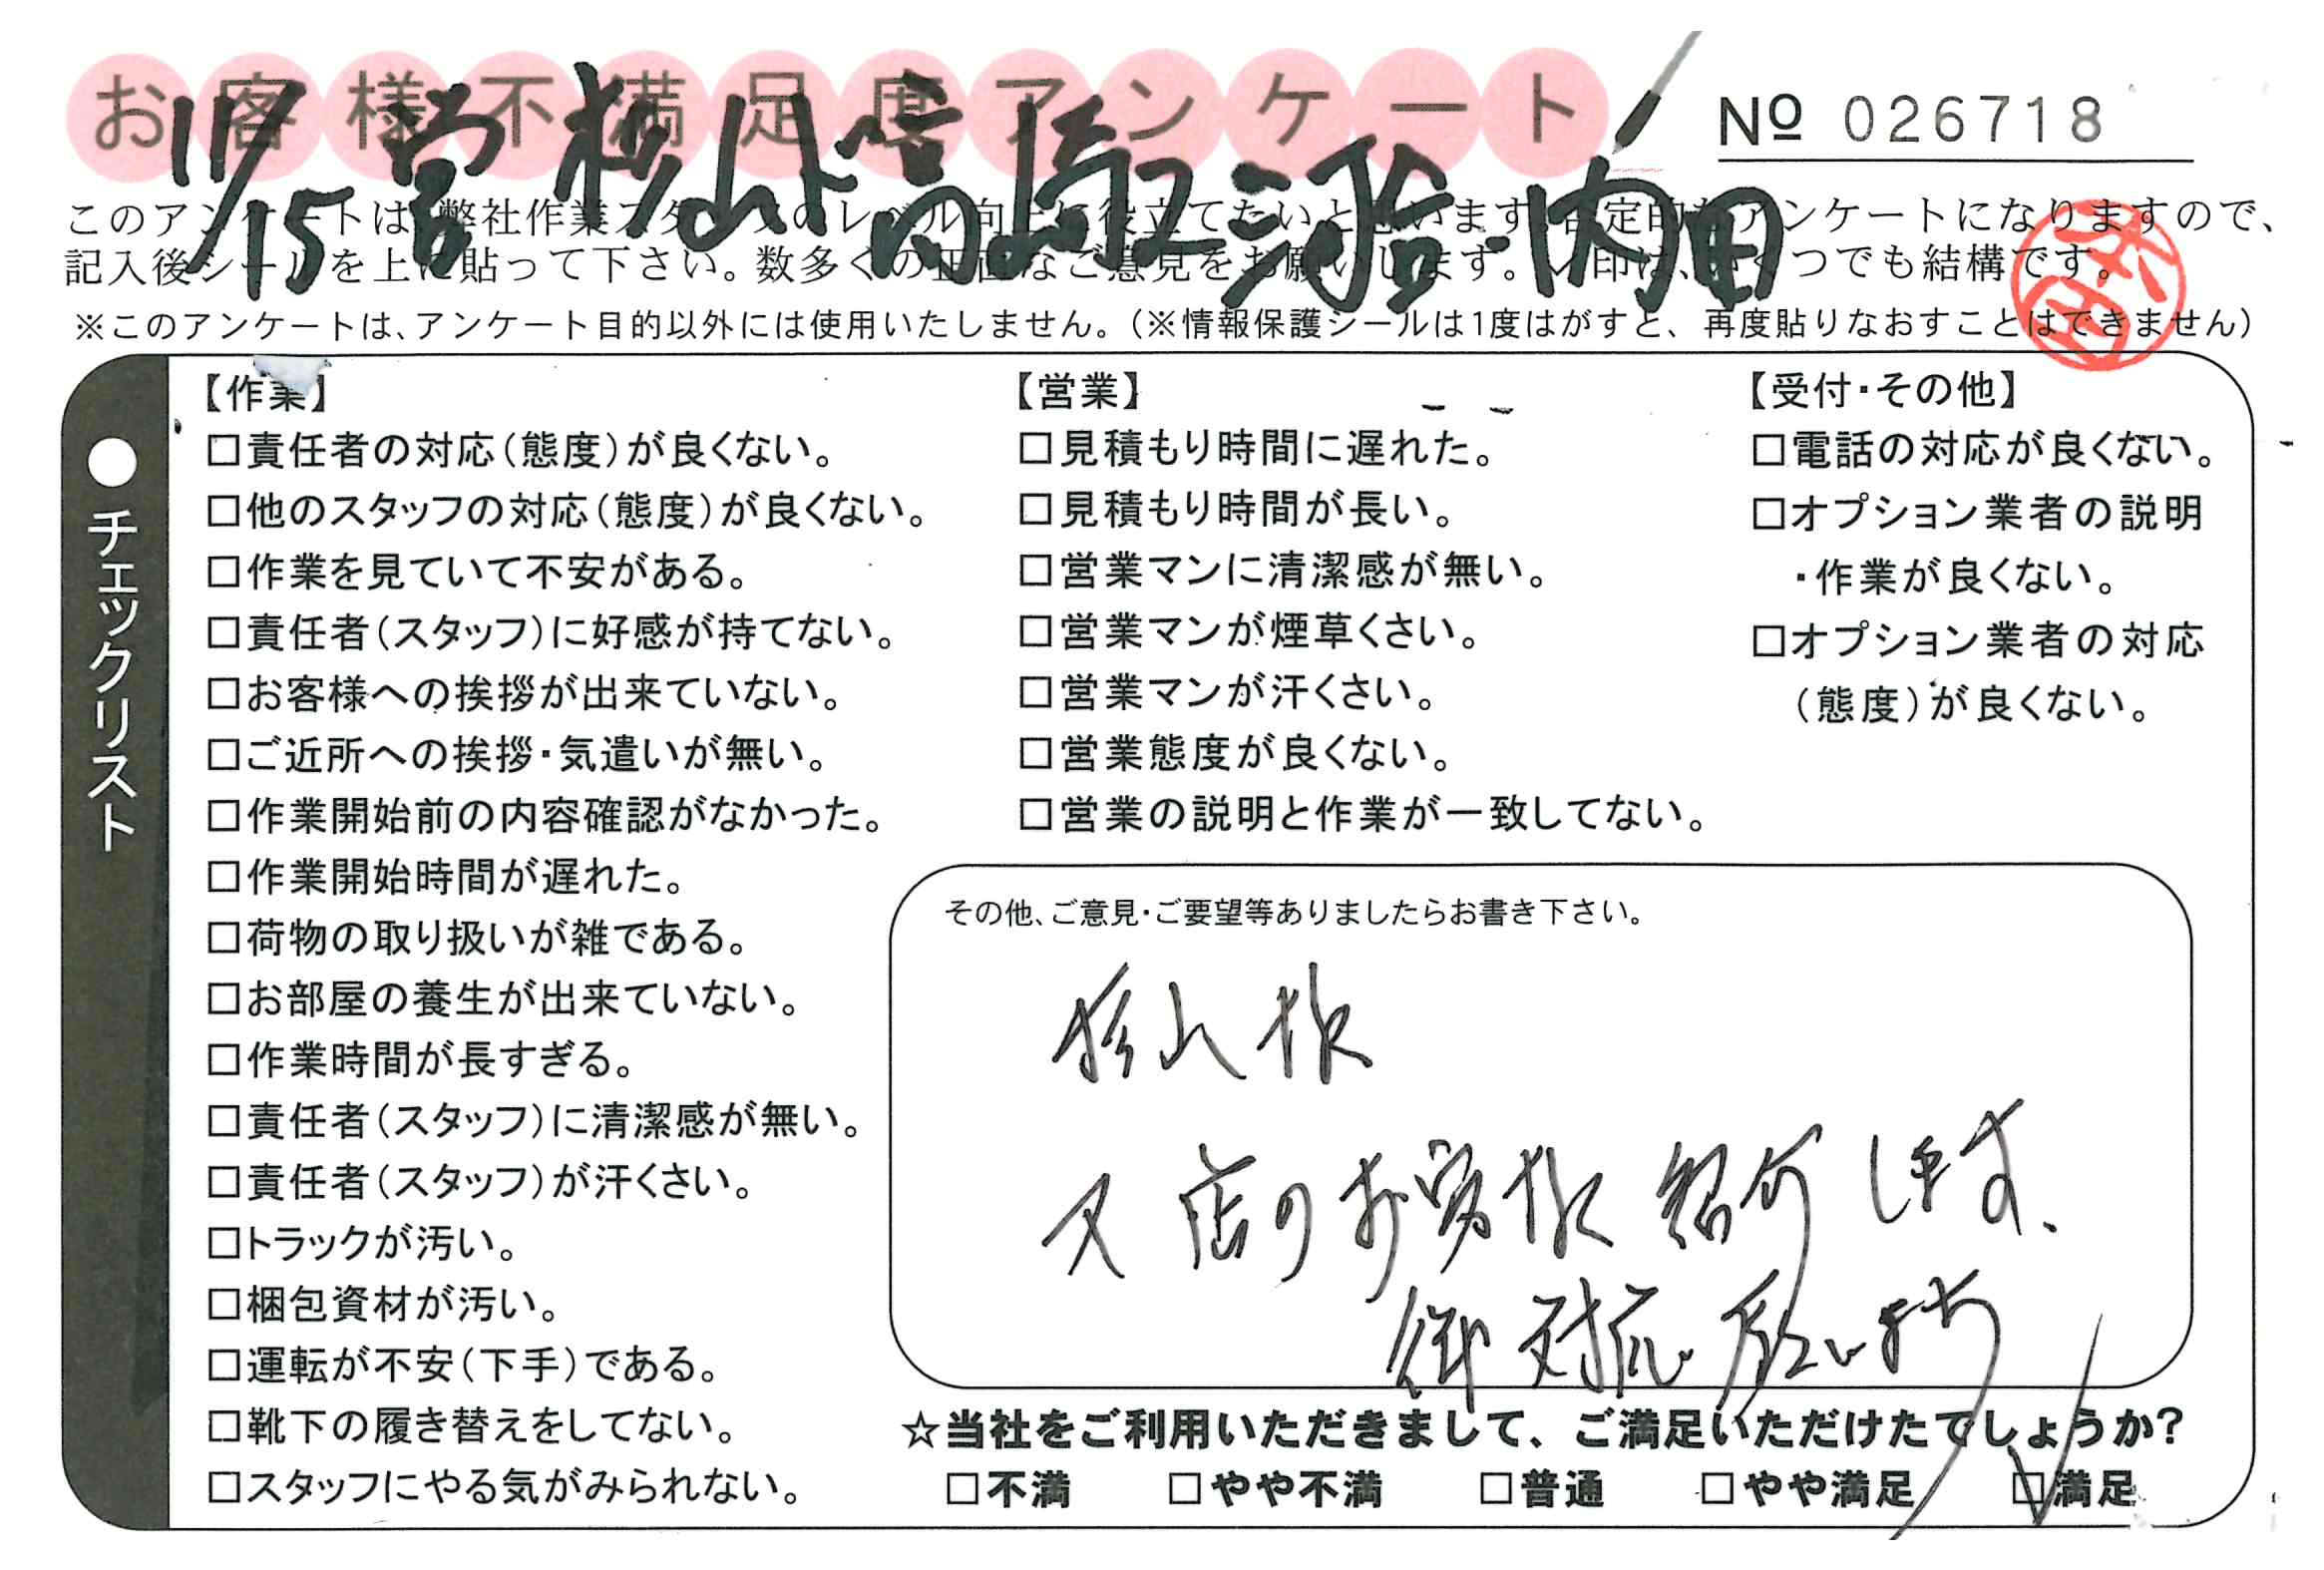 お客様不満足度アンケート
№ 026718
11/15 営 杉山 高崎 内田
このアンケートは、弊社作業スタッフのレベル向上に役立てたいと思います。否定的なアンケートになりますので、
記入後シールを上に貼って下さい。数多くの正直なご意見をお願いします。レ印は、いくつでも結構です。
※このアンケートは、アンケート目的以外には使用いたしません。(※情報保護シールは1度はがすと、再度貼りなおすことはできません)
●チェックリスト
【作業】
□責任者の対応(態度)が良くない。
□他のスタッフの対応(態度)が良くない。
□作業を見ていて不安がある。
□責任者(スタッフ)に好感が持てない。
□お客様への挨拶が出来ていない。
□ご近所への挨拶・気遣いが無い。
□作業開始前の内容確認がなかった。
□作業開始時間が遅れた。
□荷物の取り扱いが雑である。
□お部屋の養生が出来ていない。
□作業時間が長すぎる。
□責任者(スタッフ)に清潔感が無い。
□責任者(スタッフ)が汗くさい。
□トラックが汚い。
□梱包資材が汚い。
□運転が不安(下手)である。
□靴下の履き替えをしてない。
□スタッフにやる気がみられない。
【営業】
□見積もり時間に遅れた。
□見積もり時間が長い。
□営業マンに清潔感が無い。
□営業マンが煙草くさい。
□営業マンが汗くさい。
□営業態度が良くない。
□営業の説明と作業が一致してない。
【受付・その他】
□電話の対応が良くない。
□オプション業者の説明
・作業が良くない。
□オプション業者の対応
(態度)が良くない。
その他、ご意見・ご要望等ありましたらお書き下さい。
杉山様
又店のお客様紹介します、
御対応願います
☆当社をご利用いただきまして、ご満足いただけたでしょうか?
□不満 □やや不満 □普通 □やや満足 ☑満足